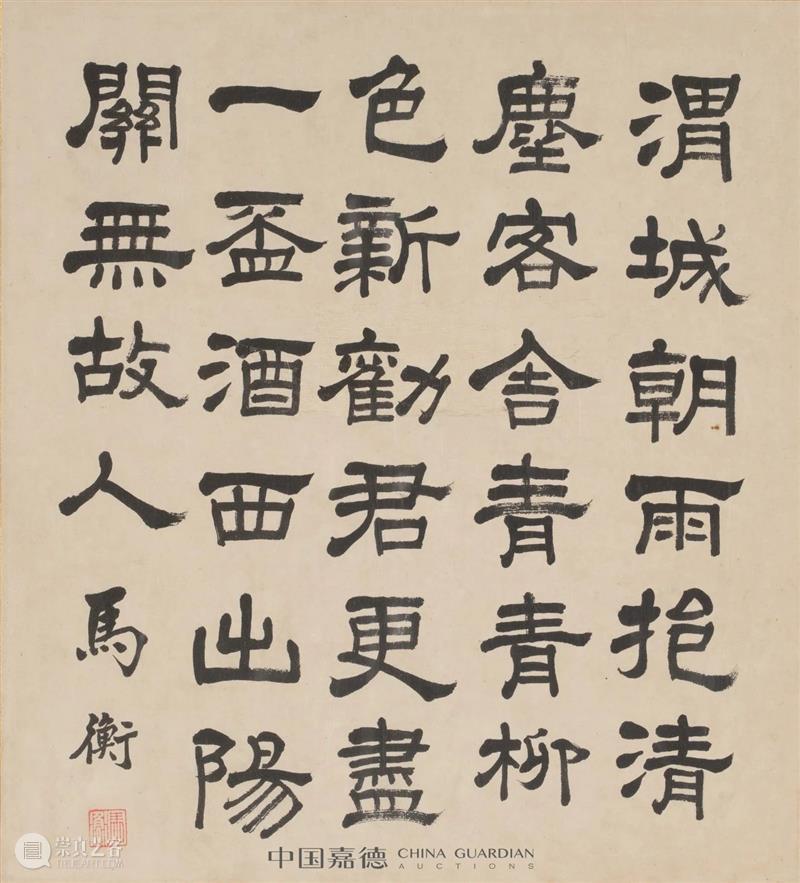 渭城朝雨挹清
塵客舍青青柳
色新勸君更盡
一盃酒西出陽
關無故人 馬衡
崇真艺客
中国嘉德 CHINA GUARDIAN
AUCTIONS